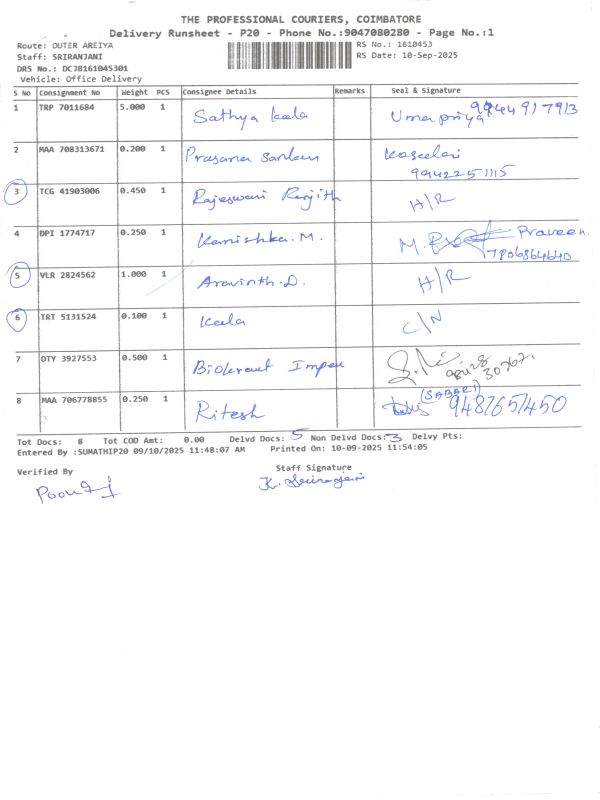 THE PROFESSIONAL COURIERS, COIMBATORE
Delivery Runsheet - P20 - Phone No.:9047080280 - Page No.:1
Route: OUTER AREIYA
RS No.: 1610453
Staff: SRIRANJANI
RS Date: 10-Sep-2025
DRS No.: DCJB161045301
Vehicle: Office Delivery
S No Consignment No Weight PCS Consignee Details Remarks Seal & Signature
1 TRP 7011684 5.000 1 Sathya kala Umapriya 9944917913
2 MAA 708313671 0.200 1 Prasana 9942251115
3 TCG 41903006 0.450 1 Rajeswari Ranjith H/R
4 DPI 1774717 0.250 1 Kanishka.M. M. Praveen.
5 VLR 2824562 1.000 1 Aravinth.D. H/R
6 TRT 5131524 0.100 1 Kala C/N
7 OTY 3927553 0.500 1
8 MAA 706778855 0.250 1 Ritesh (SABARI)
Tot Docs: 8 Tot COD Amt: 0.00 Delvd Docs: 5 Non Delvd Docs: 3 Delvy Pts:
Entered By :SUMATHIP20 09/10/2025 11:48:07 AM Printed On: 10-09-2025 11:54:05
Verified By
Staff Signature